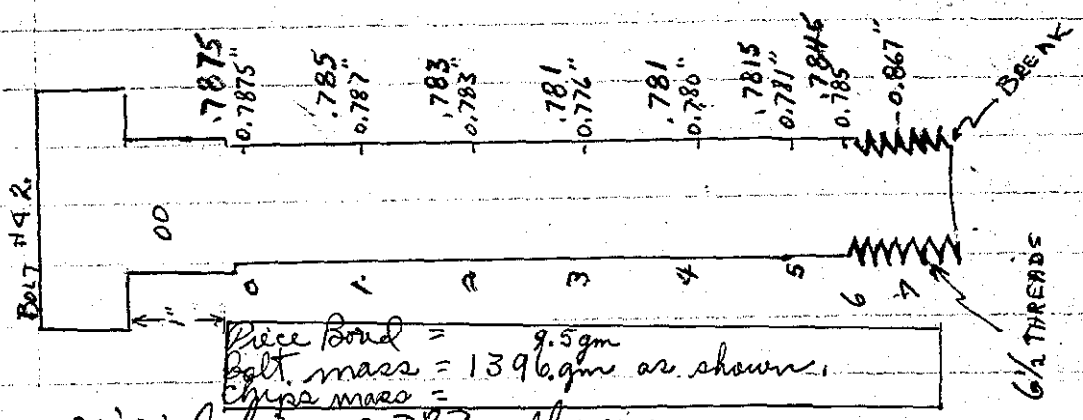 BOLT #42.
.7875
0.7875"
.785
0.787"
.783
0.783"
.781
0.776"
.781
0.780"
.7815
0.781"
.7845
0.785
0.867"
BREAK
00
0
1
2
3
4
5
6
7
1"
6 1/2 THREADS
Piece Bond = 9.5gm
Bolt mass = 1396.gm as shown.
Chips mass =